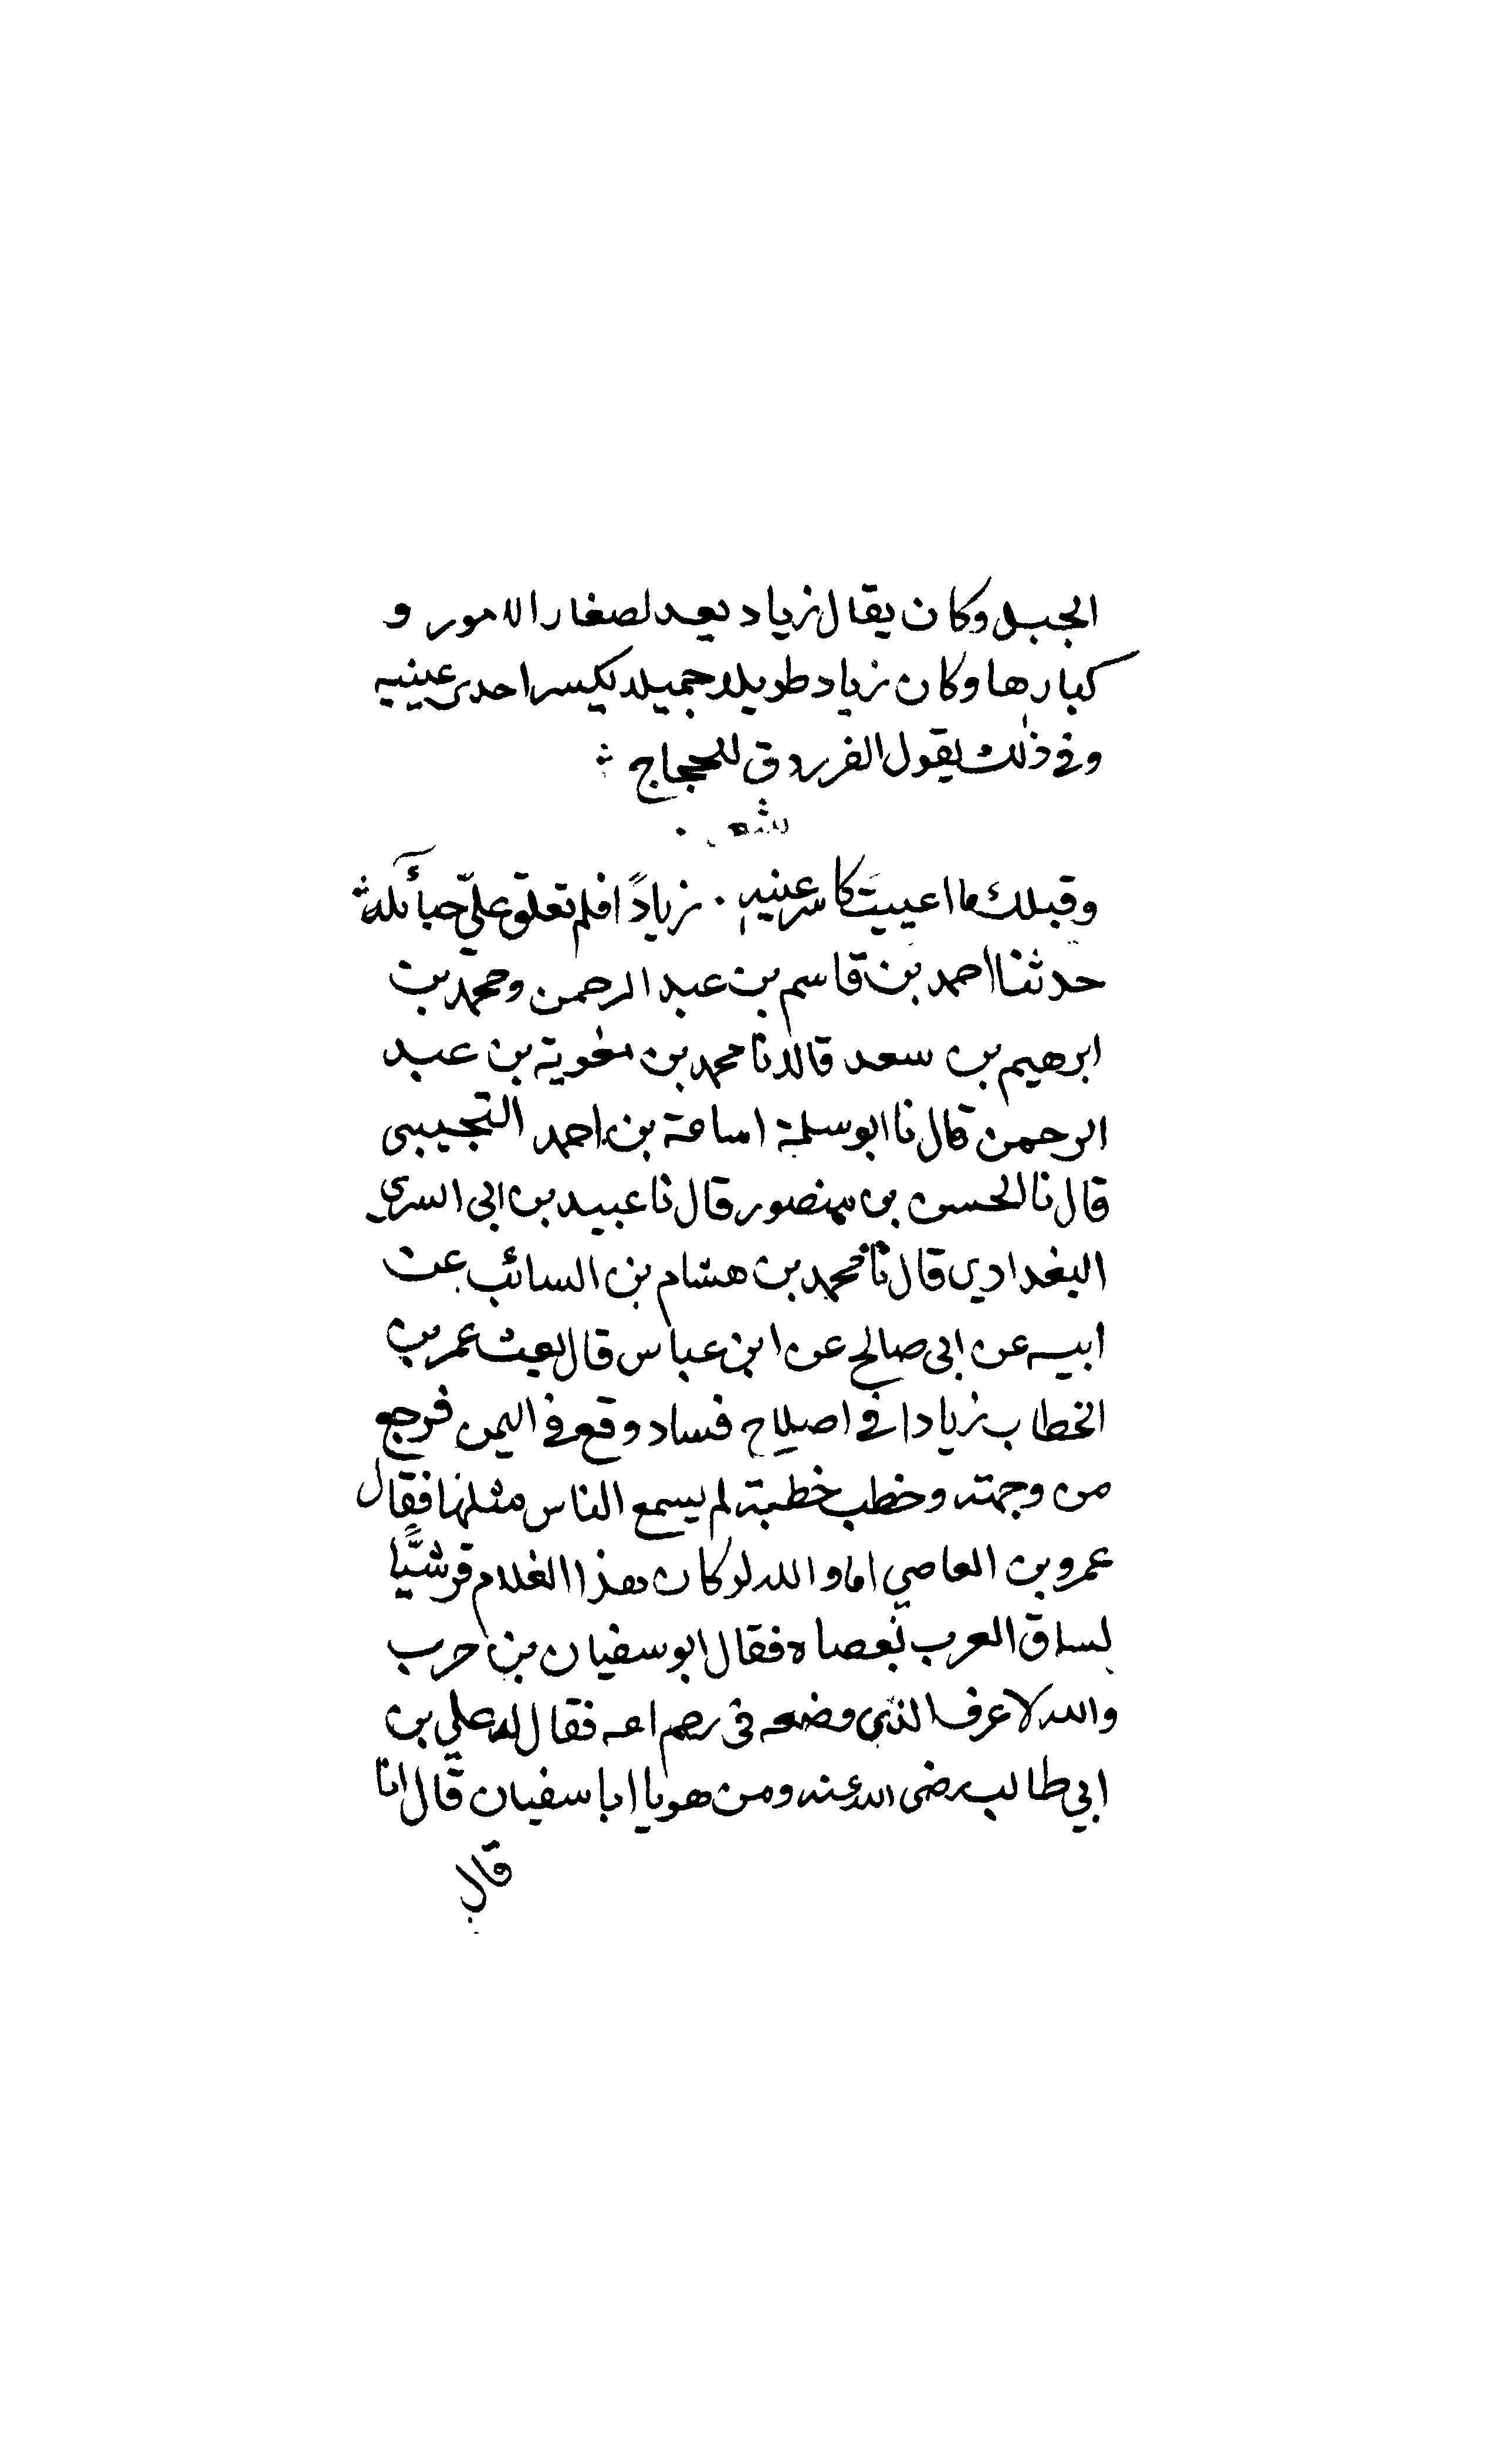 الجبل وكان يقال زياد يعد لصغار الامور و
كبارها وكان زياد طويلا جميلا يكسر احدى عينيه
وفي ذلك يقول الفرزدق للحجاج
شعر
وقبلك ما اعييت كاسر عينيه . زيادًا فلم تعلق عليّ حبائله
حدثنا احمد بن قاسم بن عبد الرحمن ومحمد بن
ابرهيم بن سعد قالا نا محمد بن معوية بن عبد
الرحمن قال نا ابو سلمة اسامة بن احمد التجيبي
قال نا الحسن بن منصور قال نا عبيد بن ابي السري
البغدادي قال نا محمد بن هشام بن السائب عن
ابيه عن ابي صالح عن ابن عباس قال بعث عمر بن
الخطاب زيادا في اصلاح فساد وقع في اليمن فرجع
من وجهته وخطب خطبة لم يسمع الناس مثلها فقال
عمرو بن العاصي اما والله لو كان هذا الغلام قرشيًّا
لساق العرب بعصاه فقال ابو سفيان بن حرب
والله لاعرف الذي وضعه في رحم امه فقال له علي بن
ابي طالب رضى الله عنه ومن هو يا ابا سفيان قال انا
قال